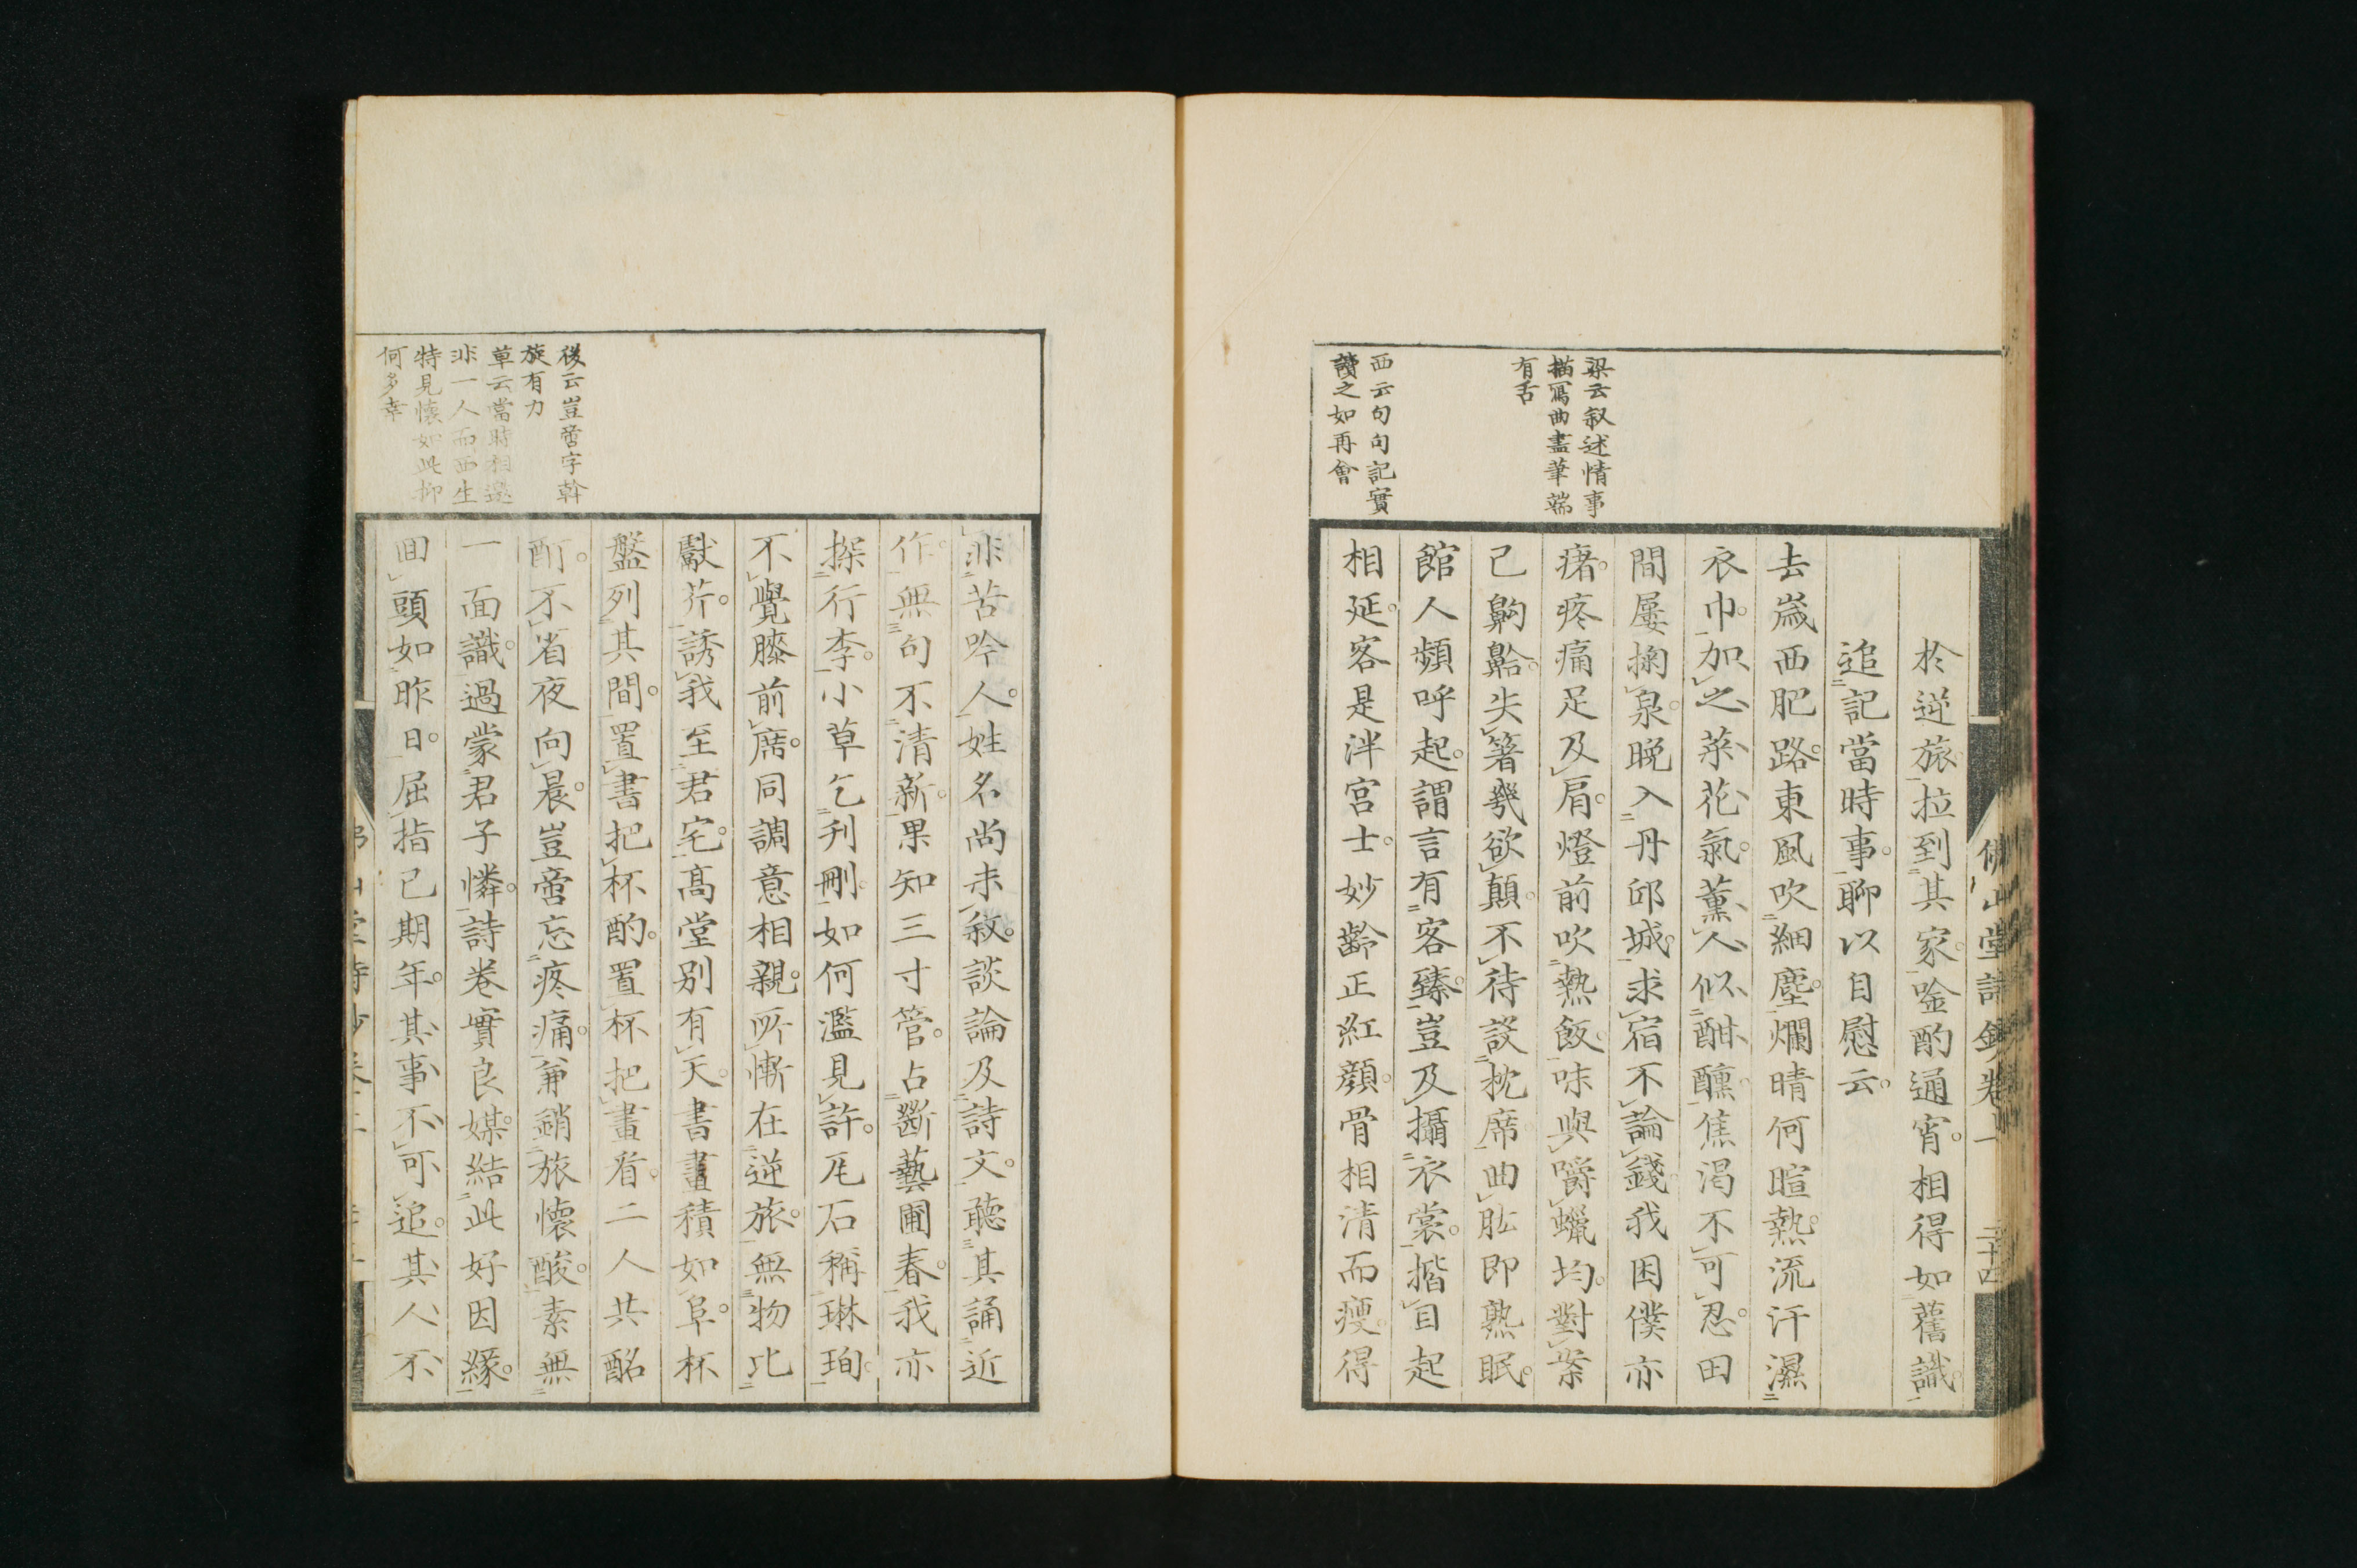 梁云叙述情事
描寫曲盡筆端
有舌
西云句句記實
讀之如再會
佛山堂詩鈔卷一
二十四
於逆旅拉到其家唫酌通宵相得如舊識
追記當時事聊以自慰云
去歲西肥路東風吹細塵爛晴何暄熱流汗濕
衣巾加之菜花氣薰人似酣醺焦渴不可忍田
間屢掬泉晚入丹邱城求宿不論錢我困僕亦
瘏疼痛足及肩燈前吹熱飯味與嚼蠟均對案
已齁齁失箸幾欲顛不待設枕席曲肱即熟眠
館人頻呼起謂言有客臻豈及攝衣裳揩目起
相延客是泮宮士妙齡正紅顏骨相清而瘦得
後云豈啻字幹
旋有力
草云當時相邀
非一人而西生
特見懷如此抑
何多幸
非苦吟人姓名尚未敘談論及詩文聽其誦近
作無句不清新果知三寸管占斷藝圃春我亦
探行李小草乞刋刪如何濫見許瓦石稱琳珣
不覺膝前席同調意相親所慚在逆旅無物比
獻芹誘我至君宅高堂別有天書畫積如阜杯
盤列其間置書把杯酌置杯把畫看二人共酩
酊不省夜向晨豈啻忘疼痛兼銷旅懷酸素無
一面識過蒙君子憐詩卷實良媒結此好因緣
回頭如昨日屈指已期年其事不可追其人不